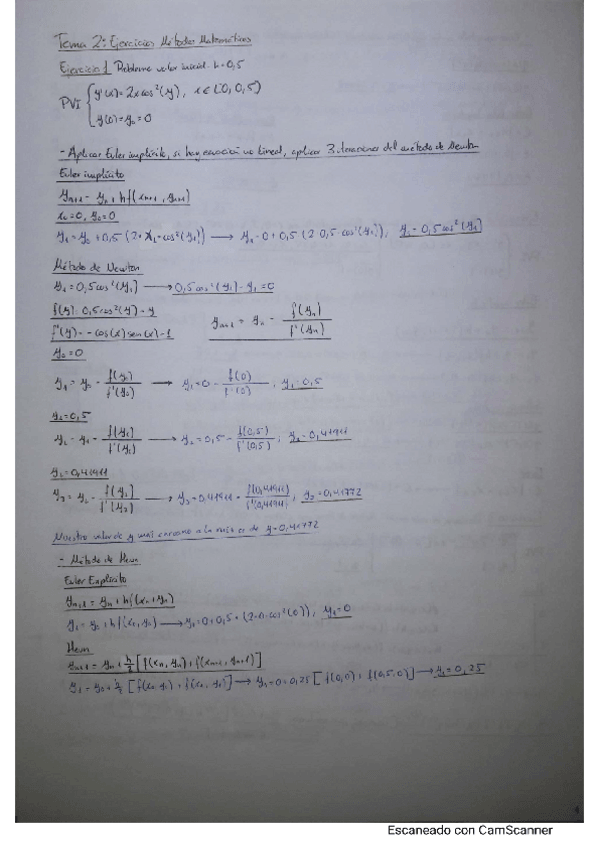 Tema 2: Ejercicios Métodos Matemáticos
Ejercicio 1 Problema valor inicial. h=0,5
PVI { y'(x)=2xcos²(y), x∈[0,0,5]
y(0)=y₀=0
- Aplicar Euler implícito, si hay ecuación no lineal, aplicar 3 iteraciones del método de Newton
Euler implícito
yₙ₊₁ = yₙ + hf(xₙ₊₁, yₙ₊₁)
x₀=0, y₀=0
y₁ = y₀ + 0,5 (2· x₁ · cos²(y₁)) → y₁ = 0 + 0,5 (2·0,5·cos²(y₁)), y₁ = 0,5cos²(y₁)
Método de Newton
y₁ = 0,5cos²(y₁) → 0,5cos²(y₁) - y₁ = 0
f(y): 0,5cos²(y) - y
f'(y) = -cos(x)sen(x)-1
yₙ₊₁ = yₙ - f(yₙ)/f'(yₙ)
y₀=0
y₁ = y₀ - f(y₀)/f'(y₀) → y₁ = 0 - f(0)/f'(0), y₁ = 0,5
y₁=0,5
y₂ = y₁ - f(y₁)/f'(y₁) → y₂ = 0,5 - f(0,5)/f'(0,5); y₂ = 0,41911
y₂=0,41911
y₃ = y₂ - f(y₂)/f'(y₂) → y₃ = 0,41911 - f(0,41911)/f'(0,41911); y₃ = 0,41772
Nuestro valor de y más cercano a la raíz es de y=0,41772
- Método de Heun
Euler Explícito
yₙ₊₁ = yₙ + hf(xₙ, yₙ)
y₁ = y₀ + hf(x₀, y₀) → y₁ = 0 + 0,5 · (2·0·cos²(0)), y₁ = 0
Heun
yₙ₊₁ = yₙ + h/2 [f(xₙ, yₙ) + f(xₙ₊₁, yₙ₊₁)]
y₁ = y₀ + h/2 [f(x₀, y₀) + f(x₁, y₁)] → y₁ = 0 + 0,25 [f(0,0) + f(0,5,0)] → y₁ = 0,25
Escaneado con CamScanner